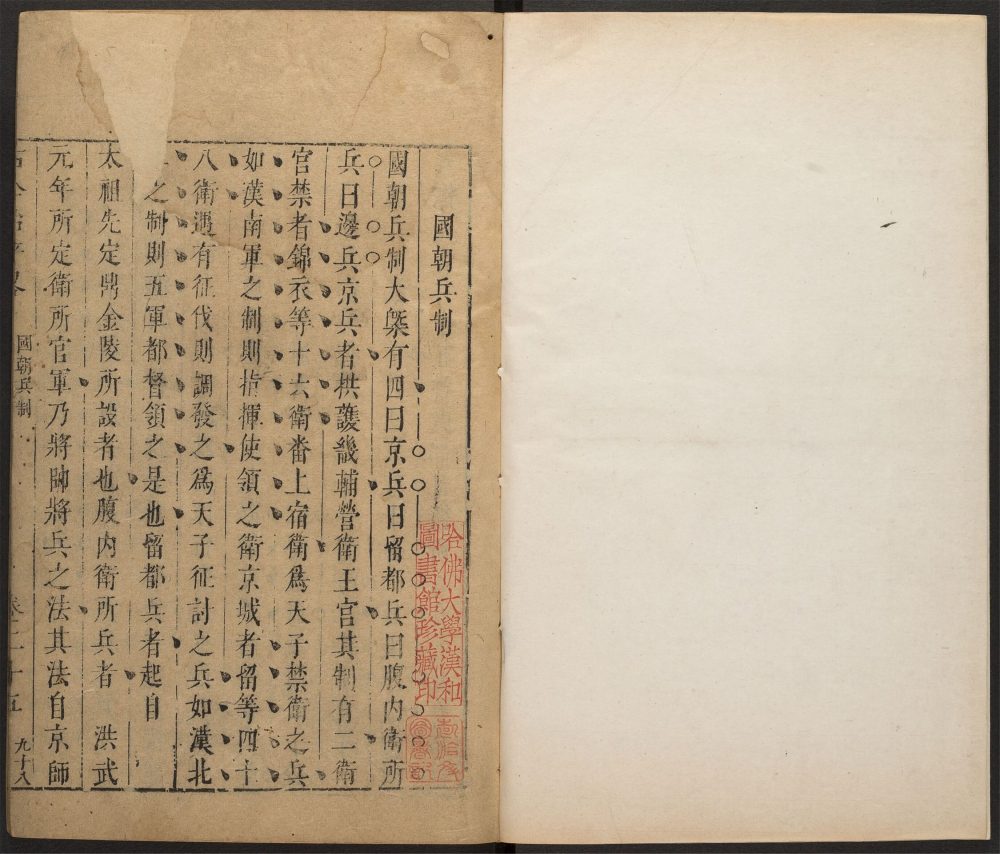 國朝兵制
國朝兵制大槩有四曰京兵曰留都兵曰腹内衛所
兵曰邊兵京兵者拱護畿輔營衛王官其制有二衛
官禁者錦衣等十六衛畨上宿衛爲天子禁衛之兵
如漢南軍之制則指揮使領之衛京城者留等四十
八衛遇有征伐則調發之爲天子征討之兵如漢北
之制則五軍都督領之是也留都兵者起自
太祖先定鼎金陵所設者也腹内衛所兵者 洪武
元年所定衛所官軍乃將帥將兵之法其法自京師
國朝兵制
卷二十五
九十八
哈佛大學漢和
圖書館珍藏印